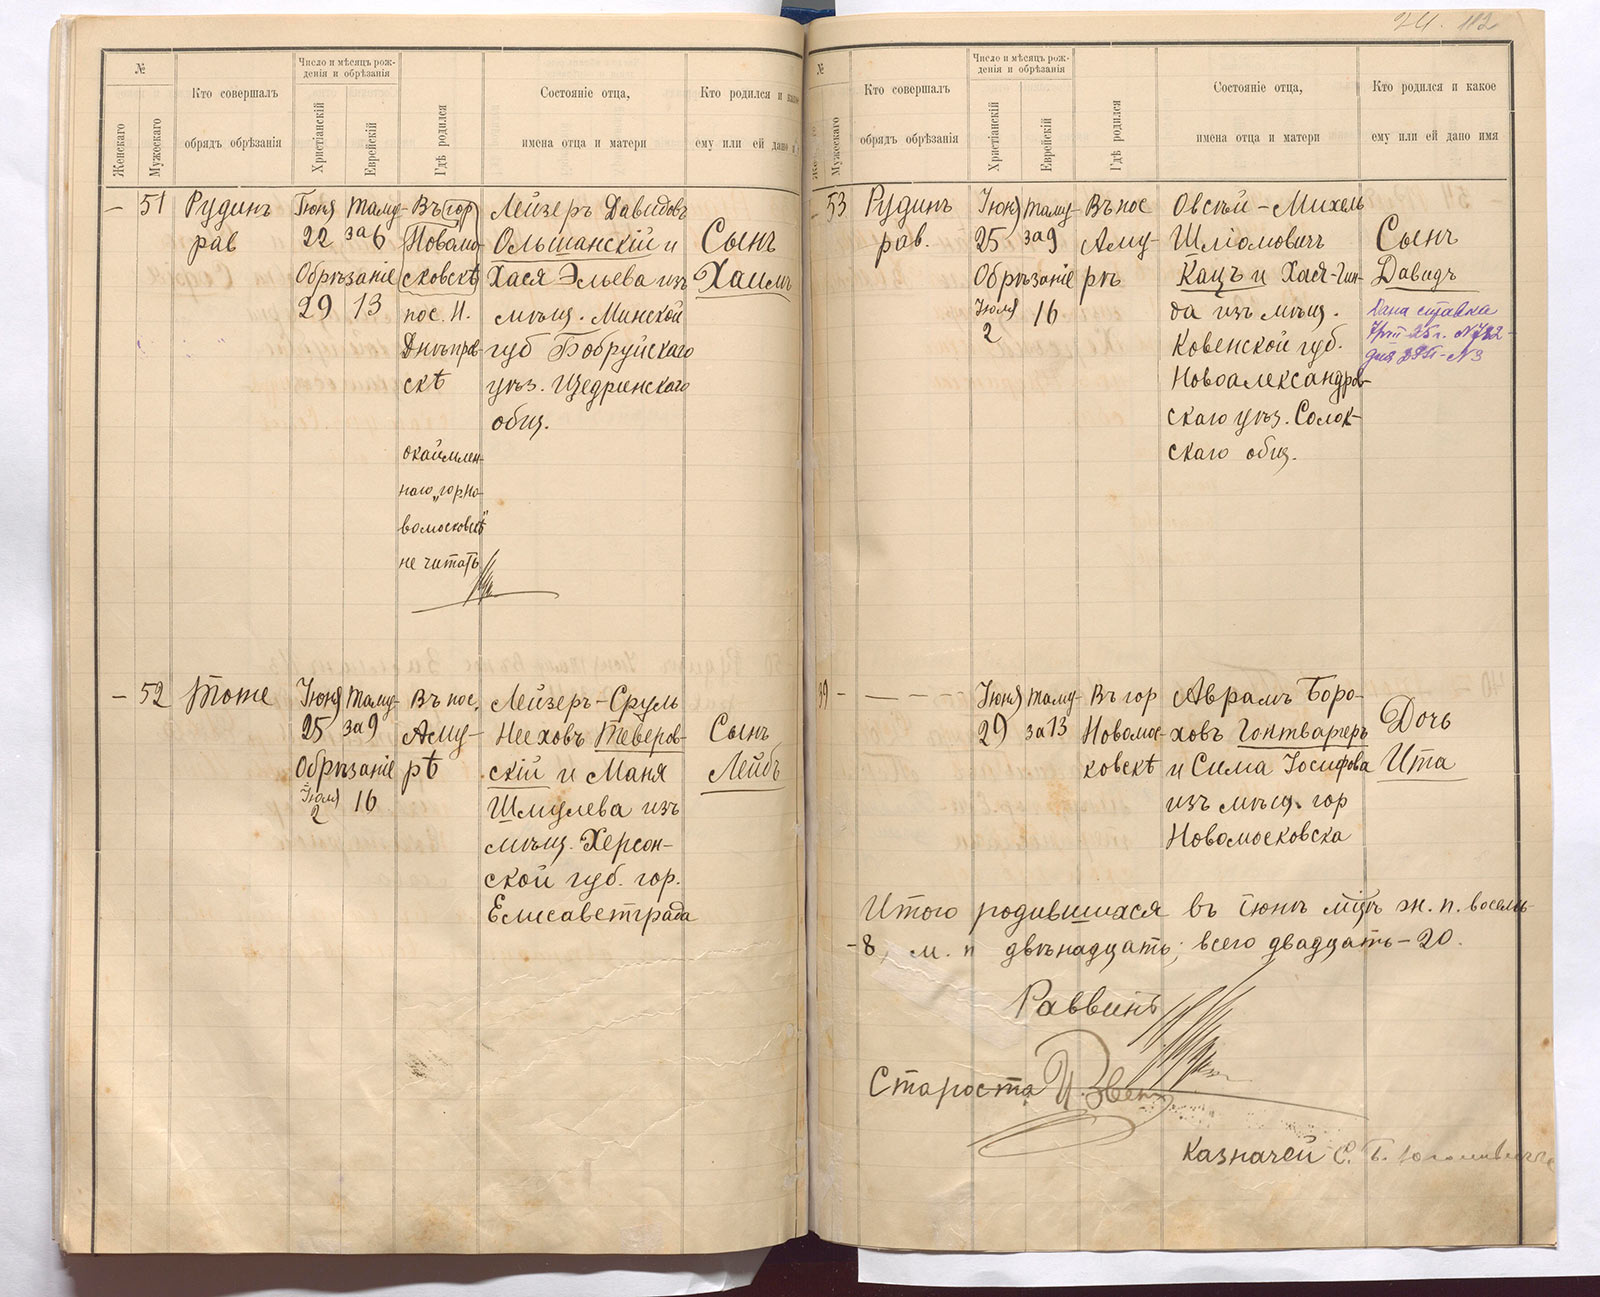 №
Женскаго
Мужескаго
Кто совершалъ
обрядъ обрѣзанія
Число и мѣсяцъ рож-
денія и обрѣзанія
Христіанскій
Еврейскій
Гдѣ родился
Состояніе отца,
имена отца и матери
Кто родился и какое
ему или ей дано и
— 51
Рудинъ
рав
Іюня
22
Обрѣзаніе
29
Таму-
за 6
13
Въ гор
Новомо-
сковскѣ
пос. Н.
Днѣпров
скѣ
окаймлен-
наго „гор. Но-
вомосковскѣ"
не читать
Лейзеръ Давидовъ
Ольшанскій и
Хася Эльева изъ
мѣщ. Минской
губ Бобруйскаго
уѣз. Щедринскаго
общ.
Сынъ
Хаимъ
— 52
Тоже
Іюня
25
Обрѣзаніе
Іюля
2
Таму-
за 9
16
Въ пос.
Аму-
рѣ
Лейзеръ-Сруль
Неуховъ Теверов-
скій и Маня
Шмулева изъ
мѣщ. Херсон-
ской губ. гор.
Елисаветграда
Сынъ
Лейбъ
112
№
Мужескаго
Кто совершалъ
обрядъ обрѣзанія
Число и мѣсяцъ рож-
денія и обрѣзанія
Христіанскій
Еврейскій
Гдѣ родился
Состояніе отца,
имена отца и матери
Кто родился и какое
ему или ей дано имя
— 53
Рудинъ
рав.
Іюня
25
Обрѣзаніе
Іюля
2
Таму-
за 9
16
Въ пос
Аму-
рѣ
Овсѣй-Михель
Шліомовичъ
Кацъ и Хася-Гин-
да изъ мѣщ.
Ковенской губ.
Новоалександров-
скаго уѣз. Солок-
скаго общ.
Сынъ
Давидъ
Дана справка
39 — — — — —
Іюня
29
Таму-
за 13
Въ гор
Новомос-
ковскѣ
Аврамъ Боро-
ховъ Гонтваргеръ
и Сима Іосифова
изъ мѣщ. гор
Новомосковска
Дочь
Ита
Итого родившихся въ іюнѣ мцѣ ж. п. восемь-
-8, м. п двѣнадцать; всего двадцать-20.
Раввинъ
Староста
Казначей